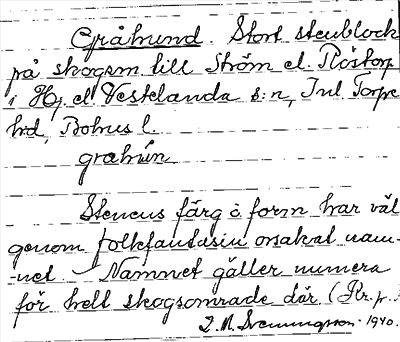 Gråhund. Stort stenblock
på skogsm till Ström el. Röstorp
i Hj. el. Vesklanda s:n, Inl Torpe
hrd, Bohus l.
grahùn
Stenens färg ò form har väl
genom folkfantasin orsakat nam-
net. Namnet gäller numera
för hell skogsomrade där. (Kr. p.
. 1940.